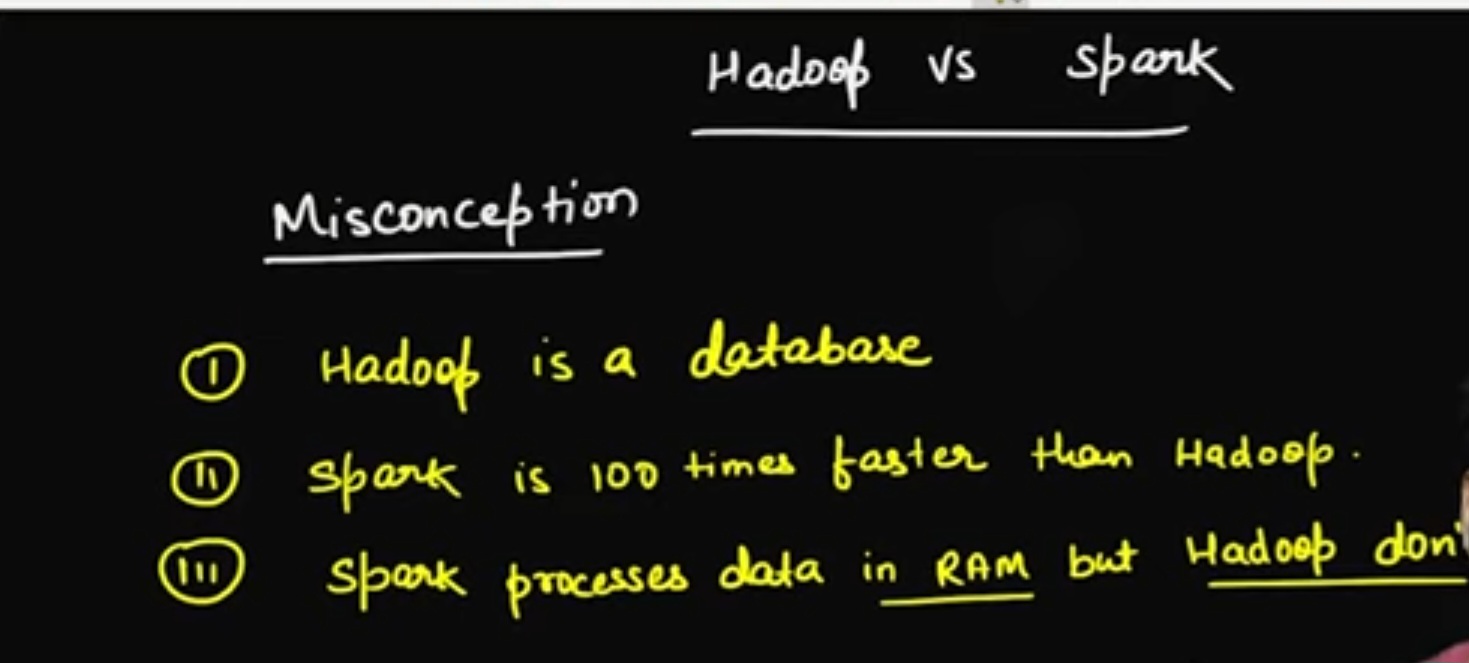 Hadoop vs Spark
Misconception
(I) Hadoop is a database
(II) Spark is 100 times faster than Hadoop.
(III) Spark processes data in RAM but Hadoop don'